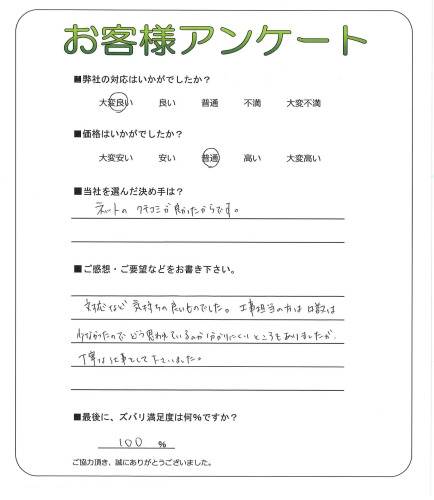 お客様アンケート
■弊社の対応はいかがでしたか？
大変良い 良い 普通 不満 大変不満
■価格はいかがでしたか？
大変安い 安い 普通 高い 大変高い
■当社を選んだ決め手は？
ネットの クチコミが良かったからです。
■ご感想・ご要望などをお書き下さい。
対応など 気持ちの良いものでした。工事担当の方は 口数は
少なかったので どう思われているのか分かりにくいところもありましたが、
丁寧な仕事をして下さいました。
■最後に、ズバリ満足度は何％ですか？
100 ％
ご協力頂き、誠にありがとうございました。